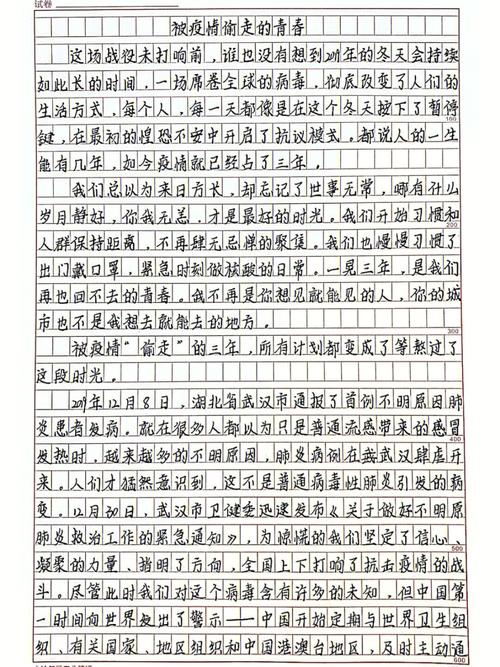 试卷
被疫情偷走的青春
这场战役未打响前，谁也没有想到2019年的冬天会持续
如此长的时间，一场席卷全球的病毒，彻底改变了人们的
生活方式，每个人，每一天都像是在这个冬天按下了暂停
100
键，在最初的惶恐不安中开启了抗议模式。都说人的一生
能有几年，如今疫情就已经占了三年。
我们总以为来日方长，却忘记了世事无常，哪有什么
岁月静好，你我无恙，才是最好的时光。我们开始习惯和
200
人群保持距离，不再肆无忌惮的聚集。我们也慢慢习惯了
出门戴口罩，紧急时刻做核酸的日常。一晃三年，是我们
再也回不去的青春。我不再是你想见就能见的人，你的城
市也不是我想去就能去的地方。
300
被疫情“偷走”的三年，所有计划都变成了等熬过了
这段时光。
2019年12月8日，湖北省武汉市通报了首例不明原因肺
炎患者发病。就在很多人都以为只是普通流感带来的感冒
400
发热时，越来越多的不明原因，肺炎病例在武汉肆虐开
来。人们才猛然意识到，这不是普通病毒性肺炎引发的病
变。12月30日，武汉市卫健委迅速发布《关于做好不明原
肺炎救治工作的紧急通知》，为惊慌的我们坚定了信心、
500
凝聚的力量、指明了方向，全国上下打响了抗击疫情的战
斗。尽管此时我们对这个病毒含有许多的未知，但中国第
一时间向世界发出了警示——中国开始定期与世界卫生组
织、有关国家、地区组织和中国港澳台地区，及时主动通
600